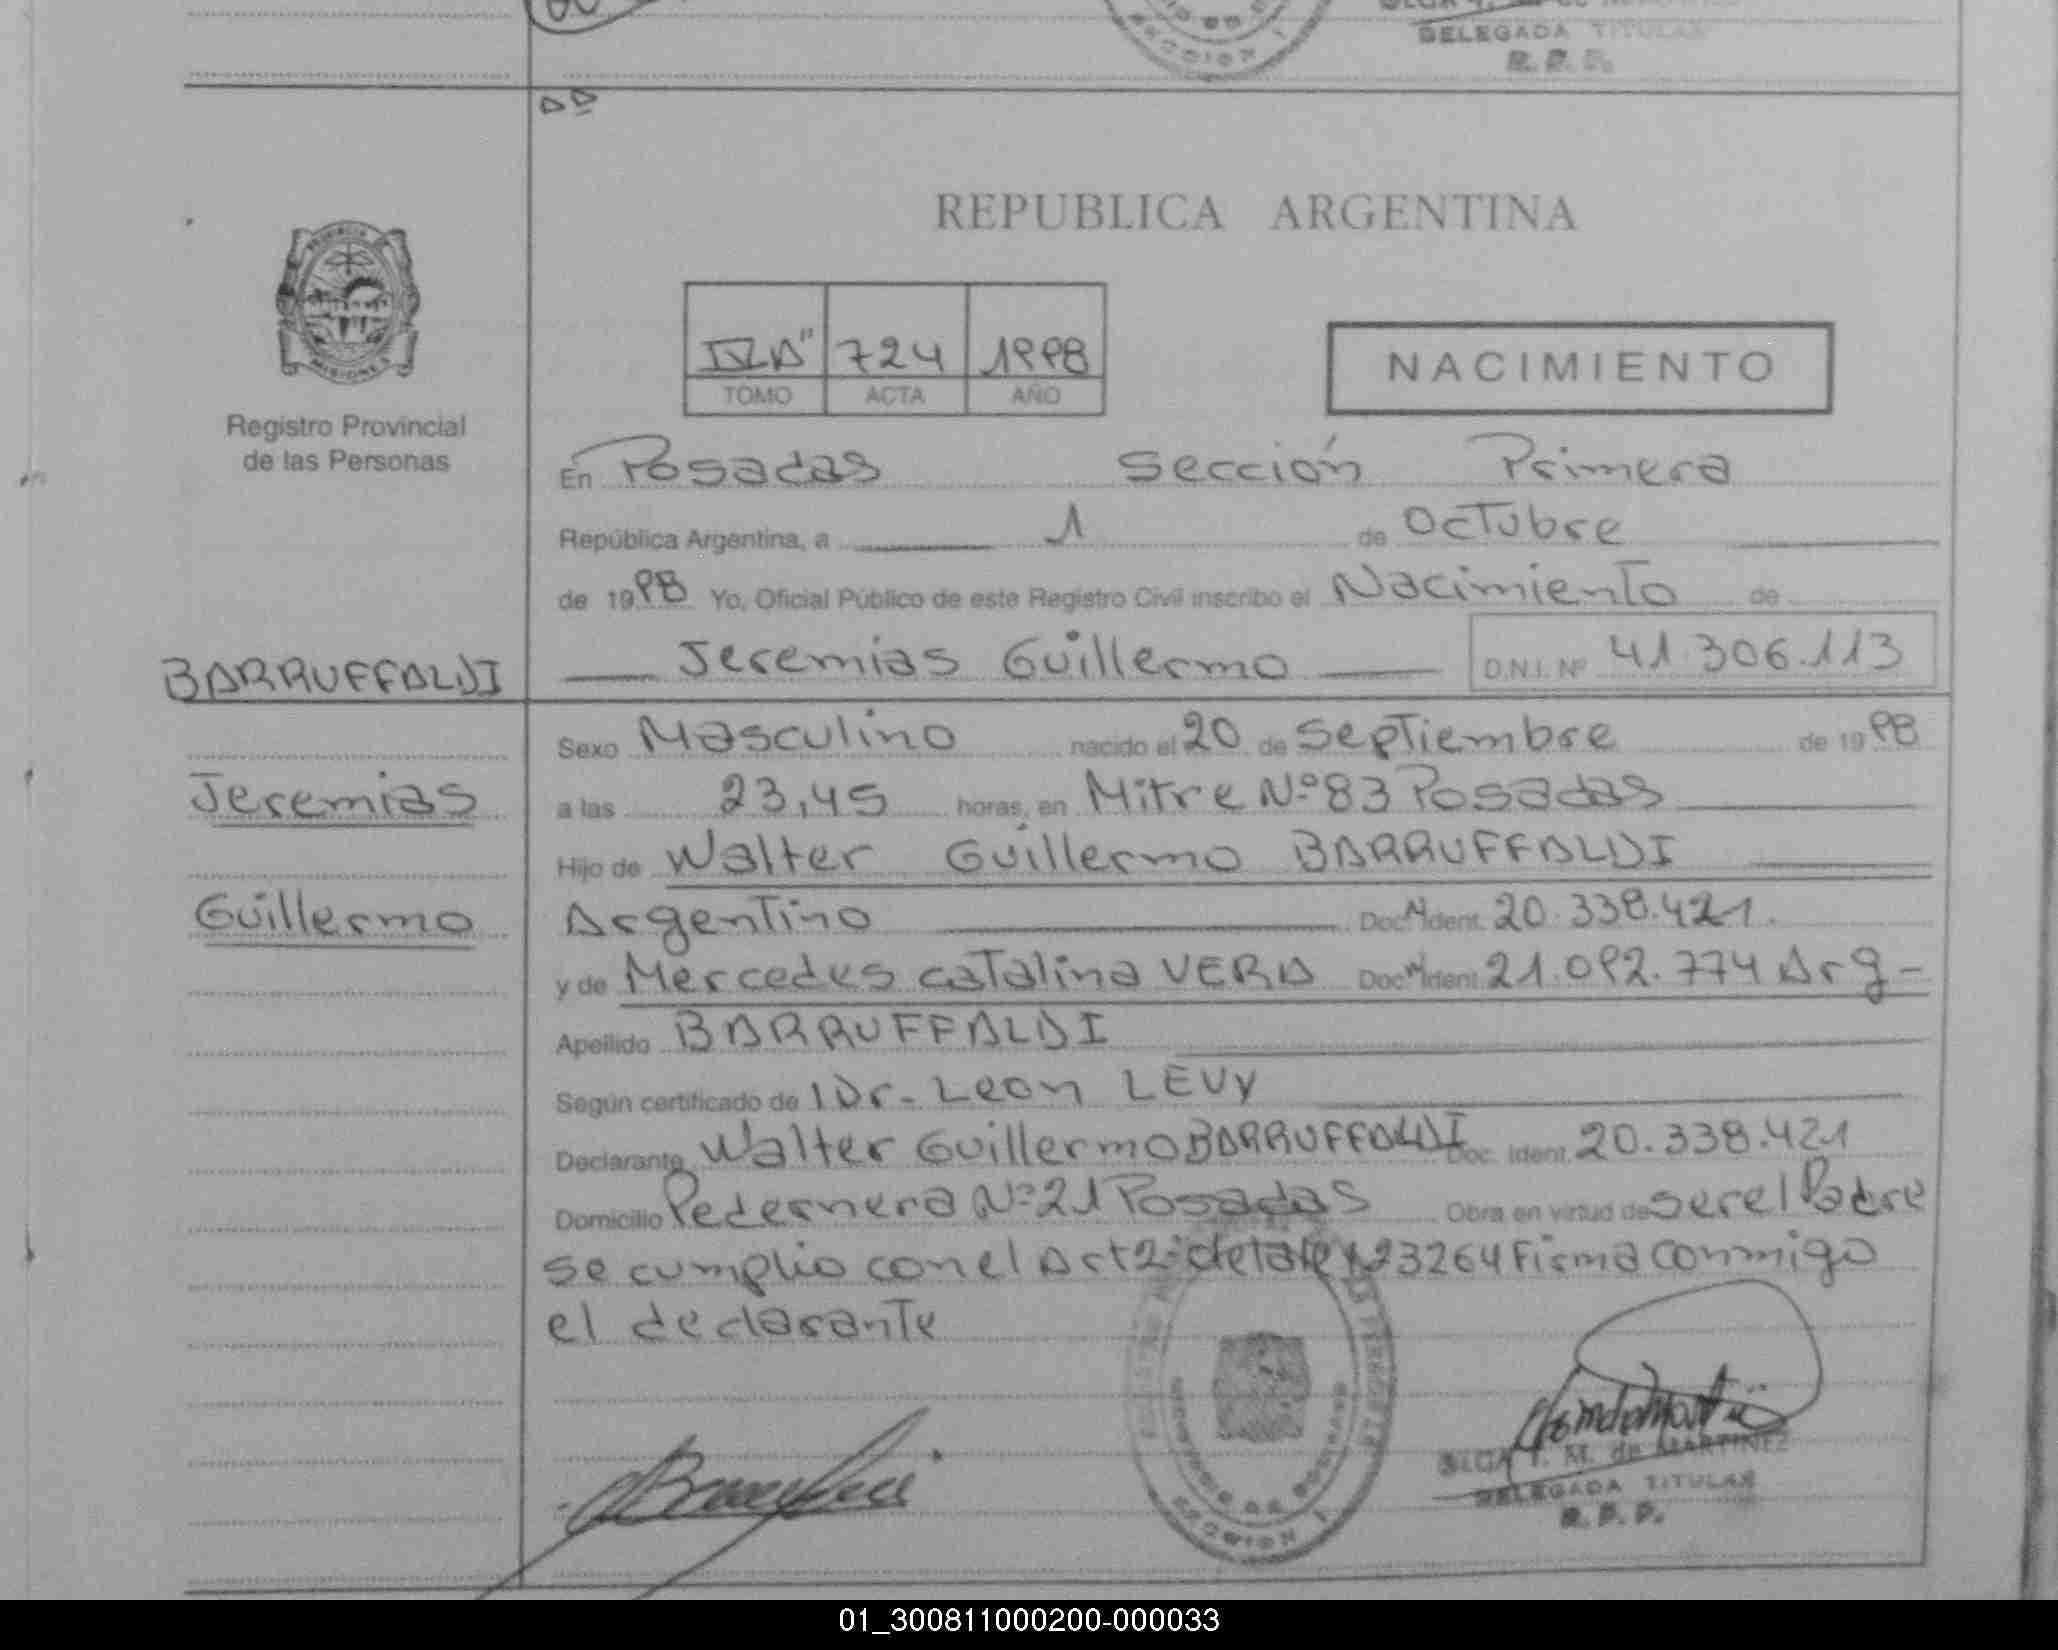 DELEGADA TITULAR
R. P. P.
REPUBLICA ARGENTINA
PROVINCIA DE
MISIONES
Registro Provincial
de las Personas
724 1998
TOMO ACTA AÑO
NACIMIENTO
En Posadas Sección Primera
República Argentina, a 1 de Octubre
de 1998 Yo, Oficial Público de este Registro Civil inscribo el Nacimiento de
BARRUFFALDI Jeremias Guillermo D.N.I. Nº 41.306.113
Sexo Masculino nacido el 20 de Septiembre de 1998
Jeremias a las 23,45 horas, en Mitre Nº 83 Posadas
Hijo de Walter Guillermo BARRUFFALDI
Guillermo Argentino Doc. Ident. 20.338.421.
y de Mercedes Catalina VERA Doc. Ident. 21.092.774 Arg-
Apellido BARRUFFALDI
Según certificado de Dr. Leon LEVY
Declarante Walter Guillermo BARRUFFALDI Doc. Ident. 20.338.421
Domicilio Pedernera Nº 21 Posadas Obra en virtud de ser el Padre
se cumplio con el Art 2º de la ley 23264 Firma conmigo
el declarante
OLGA I. M. de MARTINEZ
DELEGADA TITULAR
R. P. P.
SECCION 1
01_300811000200-000033